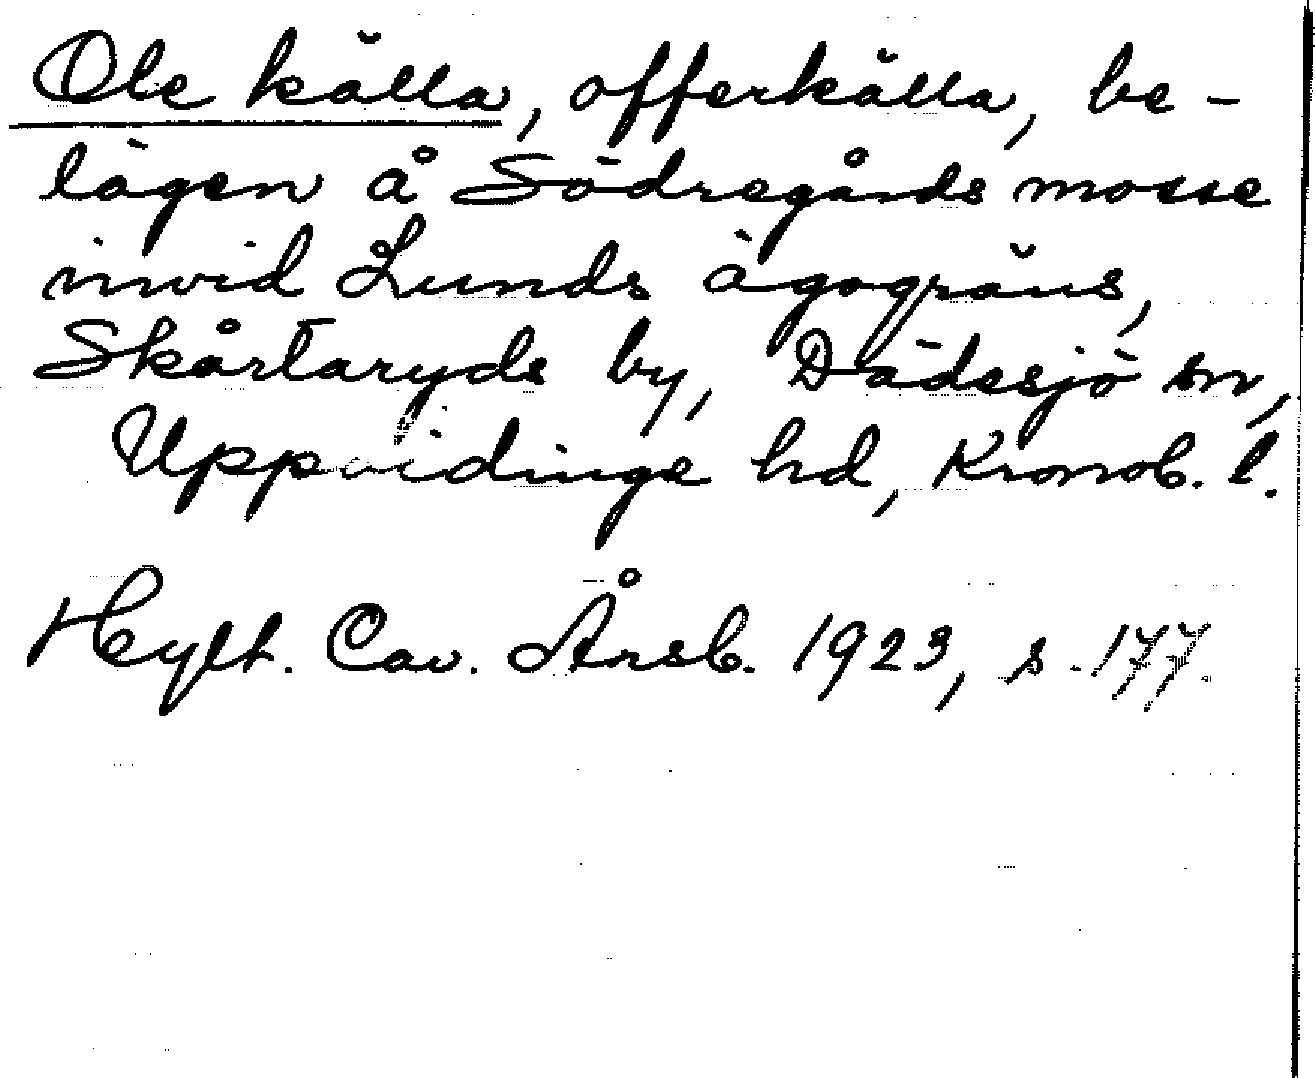 Ole källa, offerkälla, be-
lägen å Södregårds mosse
invid Lunds ägogräns,
Skårtaryds by, Dädesjö sn,
Uppvidinge hd, Kronob. l.
Hylt. Cav. Årsb. 1923, s. 177.